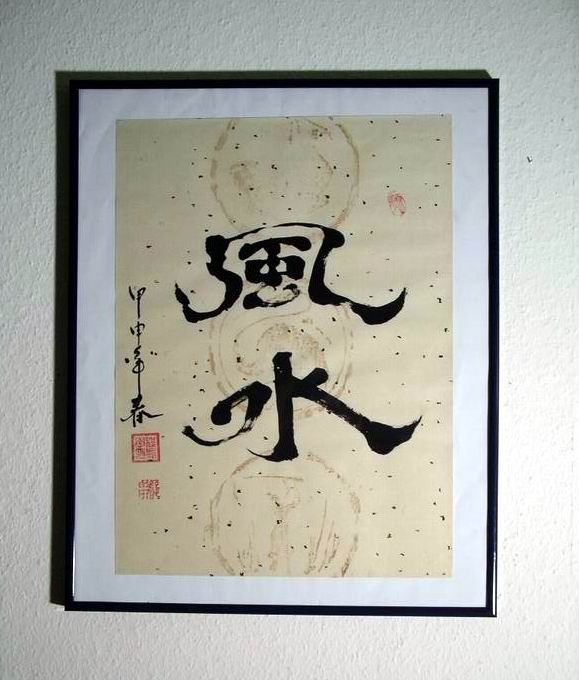 風
水
甲申年春